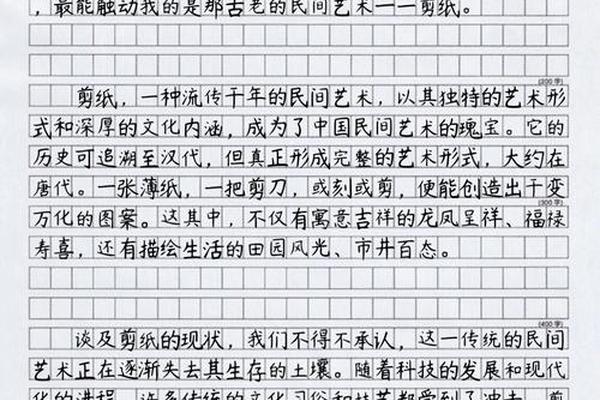 ，最能触动我的是那古老的民间艺术——剪纸。
(200字)
剪纸，一种流传千年的民间艺术，以其独特的艺术形
式和深厚的文化内涵，成为了中国民间艺术的瑰宝。它的
历史可追溯至汉代，但真正形成完整的艺术形式，大约在
唐代。一张薄纸，一把剪刀，或刻或剪，便能创造出千变
(300字)
万化的图案。这其中，不仅有寓意吉祥的龙凤呈祥、福禄
寿喜，还有描绘生活的田园风光、市井百态。
(400字)
谈及剪纸的现状，我们不得不承认，这一传统的民间
艺术正在逐渐失去其生存的土壤。随着科技的发展和现代
化的进程，许多传统的文化习俗和技艺都受到了冲击，剪